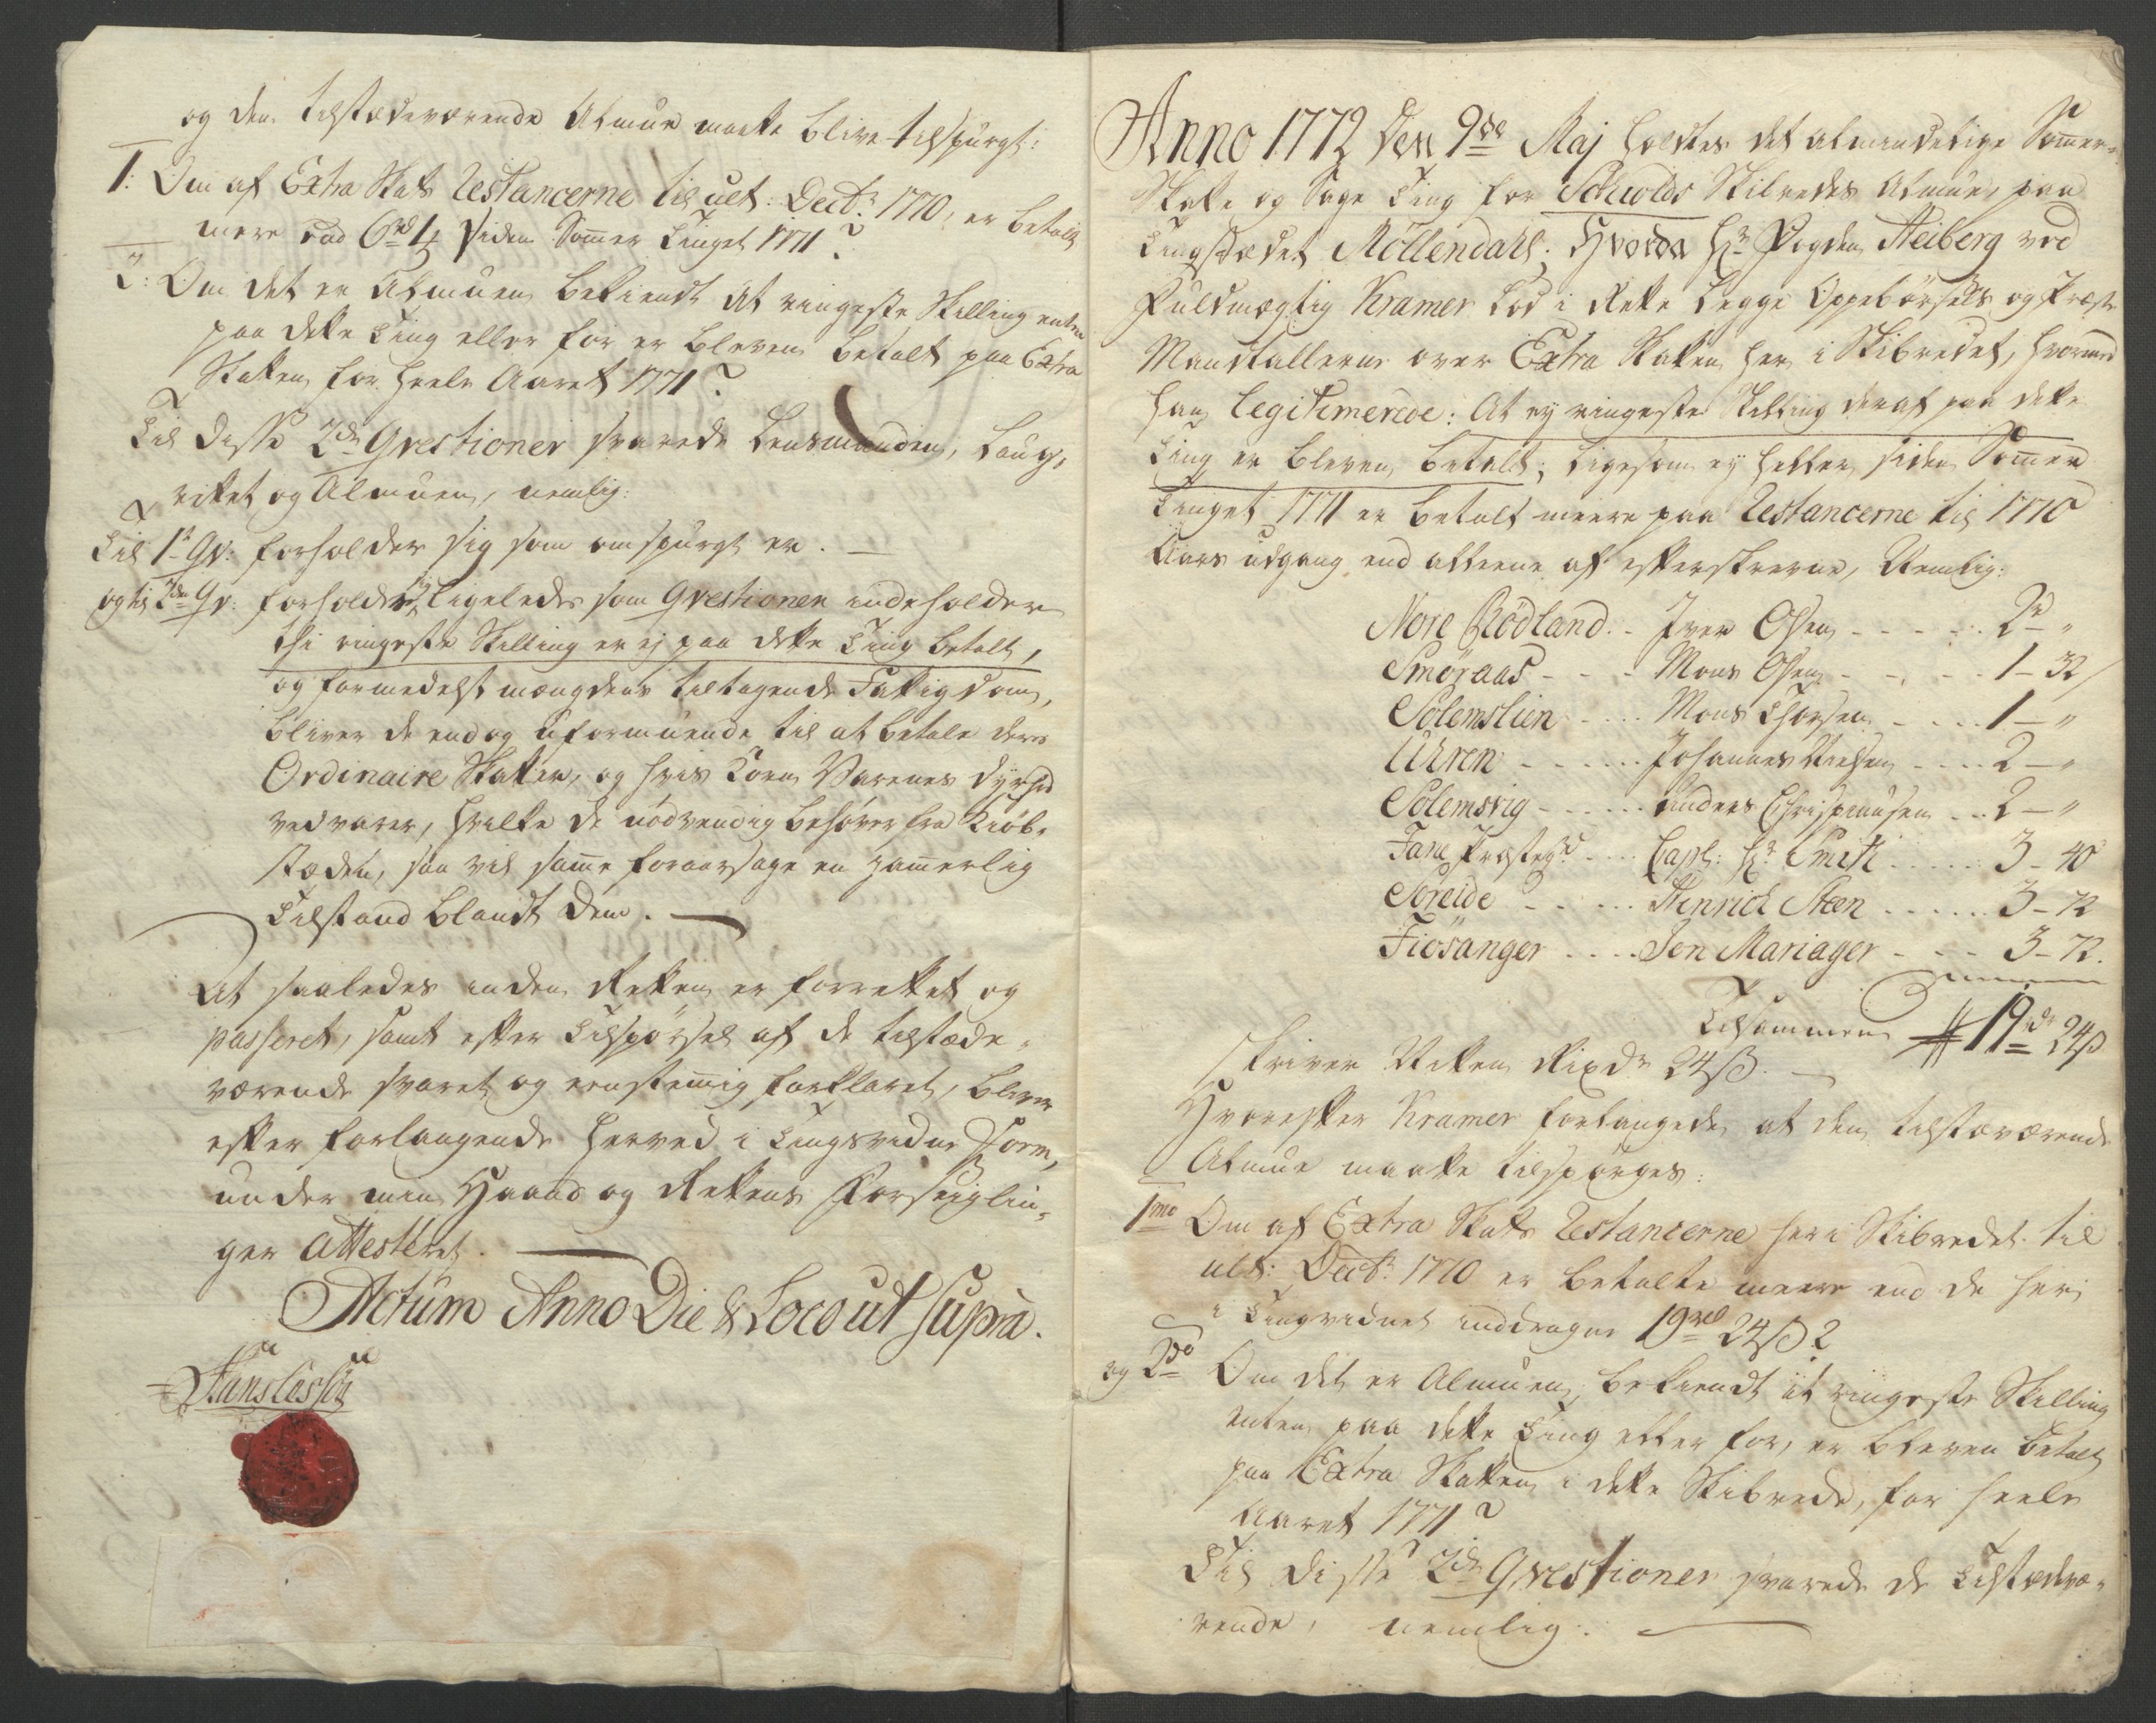 og den tilstædeværende Almue maatte blive tilspurgt:
1: Om af Extra Skatts Restancerne til ult: Decbr: 1770, er betalt
mere end 6 rd 4 ß siden Sommer Tinget 1771?
2: Om det er Almuen bekiendt at ringeste Skilling enten
paa dette Ting eller før er bleven betalt paa Extra
Skatten for heele Aaret 1771?
Til disse 2de Qvestioner svarede Lensmanden, Laug,
rettet og Almuen, nemlig:
Til 1te Qv: forholder sig som omspurgt er. —
og til 2den Qv: forholder sig ligeledes som Qvestionen indeholder
thi ringeste Skilling er ej paa dette Ting betalt,
og formedelst mængdens tiltagende Fattigdom,
bliver de endog uformuende til at betale deres
Ordinaire Skatter, og hvis Korn Varenes Dyrhed
vedvarer, hvilke de nødvendig behøver fra Kiøb,
stæden, saa vil samme foraarsage en jammerlig
Tilstand blandt dem. —
At saaledes inden Retten er forrettet og
passeret, samt efter Tilspørsel af de tilstæde,
værende svaret og eenstemmig forklaret, bliver
efter forlangende herved i Tingsvidne Form,
under min Haand og Rettens Forseiglin,
ger Attesteret. —
Actum Anno Die & Loco ut supra.
Anno 1772 den 9de Maj holdtes det almindelige Sommer,
Skatte og Sage Ting for Schiolds Skibredes Almue, paa
Tingstædet Möllendahl; Hvorda Hr: Fogden Heiberg ved
Fuldmægtig Kramer lod i Rette legge Oppebørsels og Præste
Mandtallerne over Extra Skatten her i Skibredet, hvormed
han legitimerede: At ej ringeste Skilling deraf paa dette
Ting er bleven betalt; ligesom ej heller siden Sommer
Tinget 1771 er betalt meere paa Restancerne til 1770
Aars udgang end alleene af efterskrevne, Nemlig:
Nore Rödland - Iver Olsen - - - - 2 rd "
Smöraas - - - Mons Olsen - - - - 1 - 32
Solemslien - - - Mons Thorsen - - - - 1 - "
Uhren - - - - - Johannes Nielsen - - - - 2 - "
Solemsvig - - - - Anders Christensen - - 2 - "
Fane Præstegd - - - Capl: Hr: Smith - - - - 3 - 40
Söreide - - - - Henrich Steen - - - - - 3 - 72
Fiösanger - - - Jon Mariager - - - 3 - 72.
Tilsammen # 19 rd 24 ß
skriver Nitten Rixdr 24 ß. —
Hvorefter Kramer forlangede, at den tilstæværende
Almue maatte tilspørges:
1mo Om af Extra Skatts Restancerne her i Skibredet til
ult: Decbr: 1770 er betalte meere end de her
i Tingsvidnet inddragne 19 rd 24 ß?
og 2do Om det er Almuen bekiendt at ringeste Skilling
enten paa dette Ting eller før, er bleven betalt
paa Extra Skatten i dette Skibrede, for heele
Aaret 1771?
Til disse 2de Qvestioner svarede de Tilstædevæ,
rende, nemlig: —